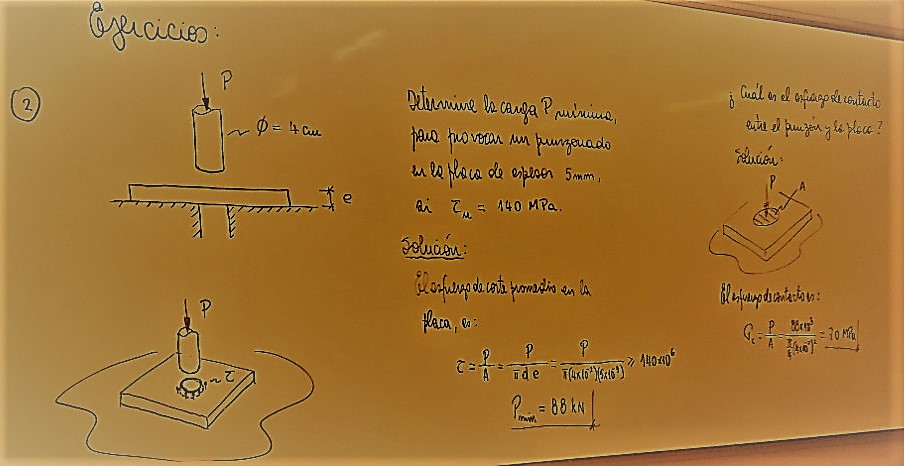 Ejercicios:
2
P
Ø = 4 cm
e
P
τ
Determine la carga P mínima,
para provocar un punzonado
en la placa de espesor 5mm,
si τu = 140 MPa.
Solución:
El esfuerzo de corte promedio en la
placa, es:
τ = P/A = P/(π d e) = P/(π(4x10⁻²)(5x10⁻³)) ≥ 140x10⁶
Pmin = 88 kN
¿ Cuál es el esfuerzo de contacto
entre el punzón y la placa?
Solución:
P
A
El esfuerzo de contacto es:
σc = P/A = 88x10³/(π/4 (4x10⁻²)²) = 70 MPa